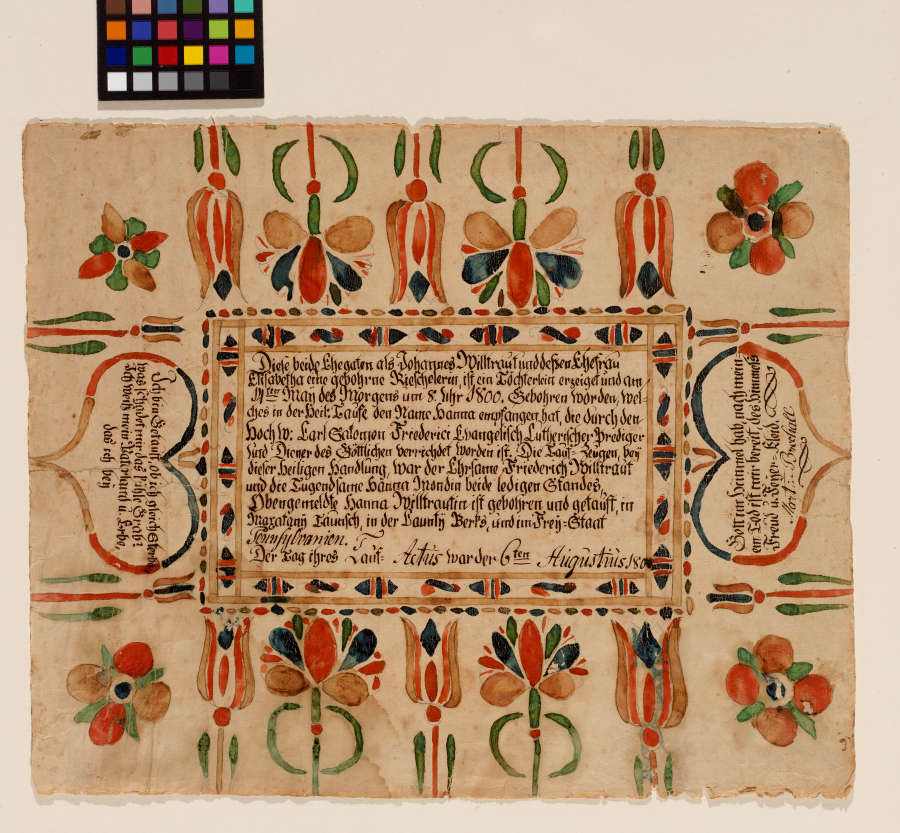 Diese beide Ehegaten als Johannes Willtraut und deßen Ehefrau
Elisabetha eine gebohrne Rieschelerin, ist ein Töchterlein erzeiget und am
14ten May des Morgens um 8. Uhr 1800. Gebohren worden, wel-
ches in der Heil: Taufe den Name Hanna empfangen hat, die durch den
Hoch W: Carl Salomon Friederici Evangelisch Lutherischer Prediger
und Diener des Göttlichen verrichdet worden ist. Die Tauf-Zeugen, bey
dieser heiligen Handlung, war der Ehrsame Friederich Willtraut
und die Tugendsame Hanna Mondin beide ledigen Standes,
Obengemeldte Hanna Willtrautin ist gebohren und getauft, in
Maxatany Taunsch, in der Caunty Berks, und im Frey-Staat
Pennsylvanien.
Der Tag ihres Tauf: Actus war der 6ten Augustius 180
Ich bin Getauft, ob ich gleich Sterbe
was schadet mir das Kühle Grab?
Ich weiß mein Vaterland u. Erbe,
das ich bey
Gott im Himmel hab, nach mein-
em Tod ist mir bereit, des Himmels
Freud u. Feyer-Kleid.
Mart: